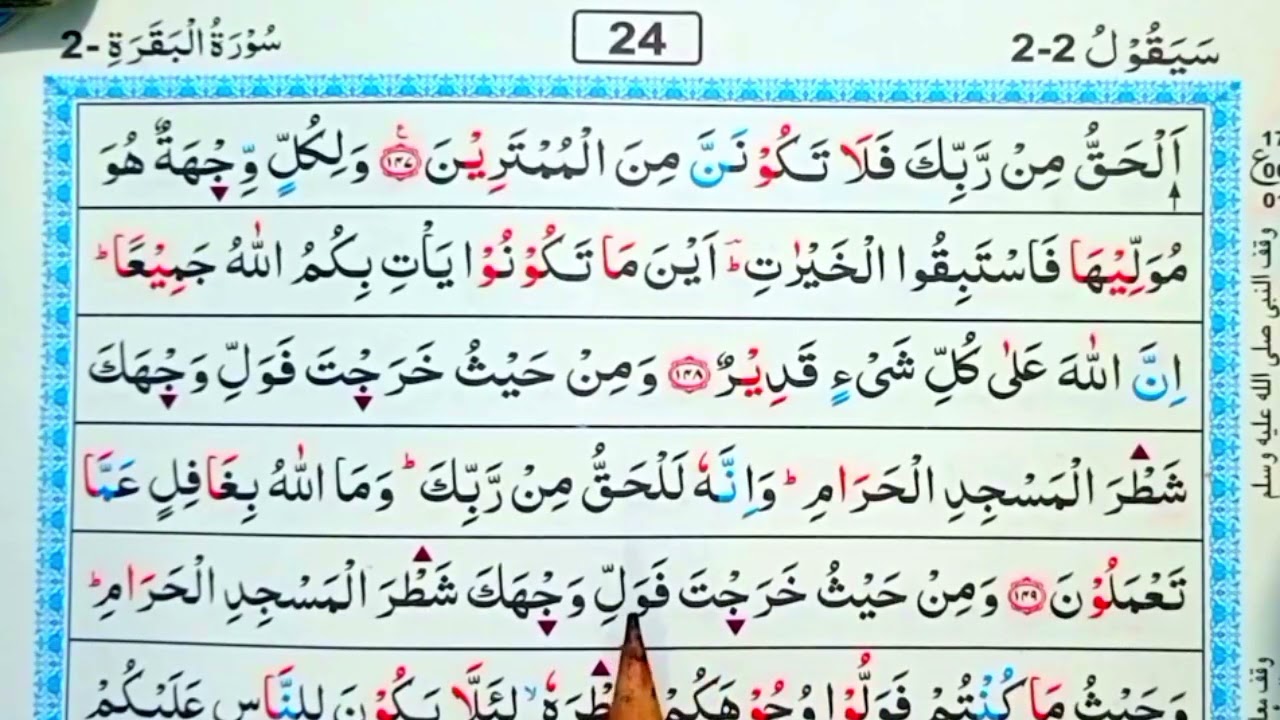 سَيَقُوْلُ 2-2
24
سُوْرَةُ الْبَقَرَةِ -2
اَلْحَقُّ مِنْ رَّبِّكَ فَلَا تَكُوْنَنَّ مِنَ الْمُمْتَرِيْنَ ۱۴۷ ع وَلِكُلٍّ وِّجْهَةٌ هُوَ
مُوَلِّيْهَا فَاسْتَبِقُوا الْخَيْرٰتِ ؕ اَيْنَ مَا تَكُوْنُوْا يَأْتِ بِكُمُ اللّٰهُ جَمِيْعًا ؕ
اِنَّ اللّٰهَ عَلٰى كُلِّ شَىْءٍ قَدِيْرٌ ۱۴۸ وَمِنْ حَيْثُ خَرَجْتَ فَوَلِّ وَجْهَكَ
شَطْرَ الْمَسْجِدِ الْحَرَامِ ؕ وَاِنَّهٗ لَلْحَقُّ مِنْ رَّبِّكَ ؕ وَمَا اللّٰهُ بِغَافِلٍ عَمَّا
تَعْمَلُوْنَ ۱۴۹ وَمِنْ حَيْثُ خَرَجْتَ فَوَلِّ وَجْهَكَ شَطْرَ الْمَسْجِدِ الْحَرَامِ ؕ
وَحَيْثُ مَا كُنْتُمْ فَوَلُّوْا وُجُوْهَكُمْ لِئَلَّا يَكُوْنَ لِلنَّاسِ عَلَيْكُمْ
وقف النبى صلى الله عليه وسلم